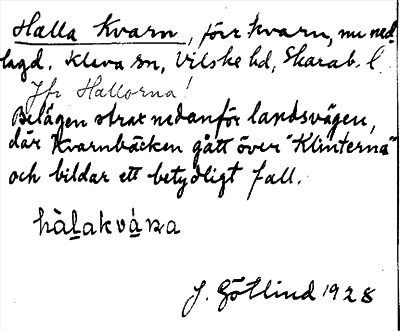 Halla Kvarn, förr kvarn, nu ned-
lagd. Kleva sn, Vilske hd, Skarab. l.
Jfr Hallorna!
Belägen strax nedanför landsvägen,
där Kvarnbäcken gått över "Klinterna"
och bildar ett betydligt fall.
hàlakváṇa
J. Götlind 1928